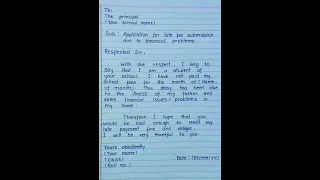 To,
The principal
(Your school name)
Sub : Application for late fee submission
due to financial problems.
Respected Sir,
With due respect, I beg to
say that I am a student of
your school. I have not paid my
school fees for the month of (Name
of month). This delay has been due
to the illness of my father and
some financial issues / problems in
my home.
Therefore I hope that you
would be kind enough to remit my
late payment fine and oblige.
I will be very thankful to you.
Yours obediently
(Your name)
(Class)
Date : (DD/MM/YY)
(Roll no.)